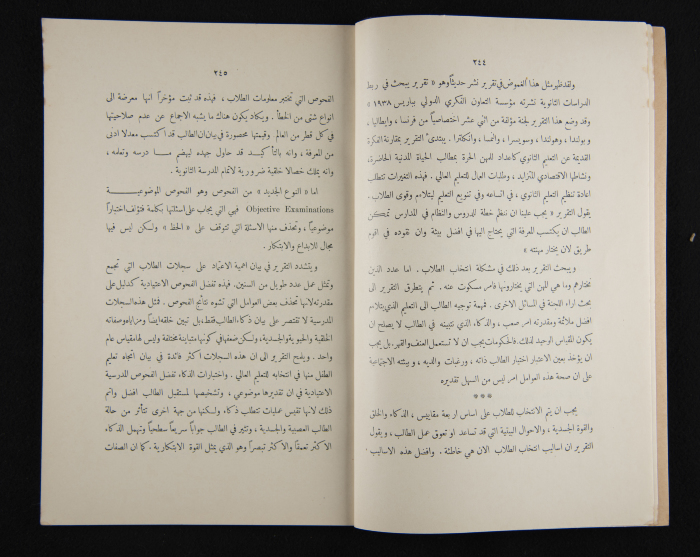 ٢٤٤
ولقد ظهر مثل هذا الغموض في تقرير نشر حديثاً وهو « تقرير يبحث في ربط
الدراسات الثانوية نشرته مؤسسة التعاون الفكري الدولي بباريس ١٩٣٨ »
وقد وضع هذا التقرير لجنة مؤلفة من اثني عشر اختصاصياً من فرنسا ، وايطاليا ،
وبولندا ، وهولندا ، وسويسرا ، والنمسا ، وانكلترا . يبتدئ التقرير بمقارنة الفكرة
القديمة عن التعليم الثانوي كاعداد للمهن الحرة بمطالب الحياة المدنية الحاضرة،
ونشاطها الاقتصادي المتزايد ، وطلبات العمال للتعليم العالي . فهذه التغيرات تتطلب
اعادة تنظيم التعليم الثانوي ، في اتساعه وفي تنويع التعليم ليتلاءم وقوى الطلاب .
يقول التقرير « يجب علينا ان ننظم خطة الدروس والنظام في المدارس تمكن
الطالب ان يكتسب المعرفة التي يحتاج اليها في افضل بيئة وان تقوده في اقوم
طريق لان يختار مهنته »
ويبحث التقرير بعد ذلك في مشكلة انتخاب الطلاب . اما عدد الذين
نختارهم وما هي المهن التي يختارونها فامر مسكوت عنه . ثم يتطرق التقرير الى
بحث اراء اللجنة في المسائل الاخرى . فمهمة توجيه الطالب الى التعليم الذي يتلاءم
افضل ملائمة ومقدرته امر صعب ، والذكاء الذي نتبينه في الطالب لا يصلح ان
يكون المقياس الوحيد لذلك. فالحكومات يجب ان لا تستعمل العنف والقهر. بل يجب
ان يؤخذ بعين الاعتبار اختيار الطالب ذاته ، ورغبات والديه ، وبيئته الاجتماعية
على ان صحة هذه العوامل امر ليس من السهل تقديره
***
يجب ان يتم الانتخاب للطلاب على اساس اربعة مقاييس ، الذكاء والخلق
والقوة الجسدية ، والاحوال البيئية التي قد تساعد او تعوق عمل الطالب ، ويقول
التقرير ان اساليب انتخاب الطلاب الان هي خاطئة . وافضل هذه الاساليب
٢٤٥
الفحوص التي تختبر معلومات الطلاب ، فهذه قد ثبت مؤخراً انها معرضة الى
انواع شتى من الخطأ . ويكاد يكون هناك ما يشبه الاجماع عن عدم صلاحيتها
في كل قطر من العالم وقيمتها محصورة في بيان ان الطالب قد اكتسب معدلا ادنى
من المعرفة ، وانه بالتأكيد قد حاول جهده ليهضم ما درسه وتعلمه ،
وانه يملك خصالا خلقية ضرورية لاتمام المدرسة الثانوية .
اما « النوع الجديد » من الفحوص وهو الفحوص الموضوعية
Objective Examinations فهي التي يجاب على اسئلتها بكلمة فتؤلف اختباراً
موضوعياً ، وتحذف منها الاسئلة التي تتوقف على « الحظ » ولكن ليس فيها
مجال للابداع والابتكار .
ويتشدد التقرير في بيان اهمية الاعتماد على سجلات الطلاب التي تجمع
وتمثل عمل عدد طويل من السنين. فهذه تفضل الفحوص الاعتيادية كدليل على
مقدرته لانها تحذف بعض العوامل التي تشوه نتائج الفحوص . فمثل هذه السجلات
المدرسية لا تقتصر على بيان ذكاء الطالب فقط، بل تبين خلقه ايضاً ومزاياه وصفاته
الخلقية والحيوية والجسدية، ولكن ضعفها في كونها متباينة مختلفة وليس لها مقياس عام
واحد . ويلمح التقرير الى ان هذه السجلات اكثر فائدة في بيان اتجاه تعليم
الطفل منها في انتخابه للتعليم العالي . واختبارات الذكاء تفضل الفحوص المدرسية
الاعتيادية في ان تقديرها موضوعي ، وتشخيصها لمستقبل الطالب افضل واتم
ذلك لانها تقيس عمليات تتطلب ذكاء ولكنها من جهة اخرى تتأثر من حالة
الطالب العصبية والجسدية ، وتثير في الطالب جواباً سريعاً سطحياً وتهمل الذكاء
الاكثر تعمقاً والاكثر تبصراً وهو الذي يمثل القوة الابتكارية . كما ان الصفات